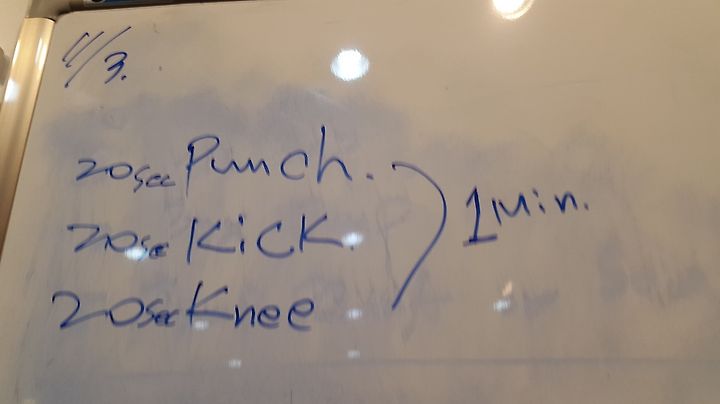 11/3.
20sec Punch.
20sec Kick.
20sec Knee
1 Min.